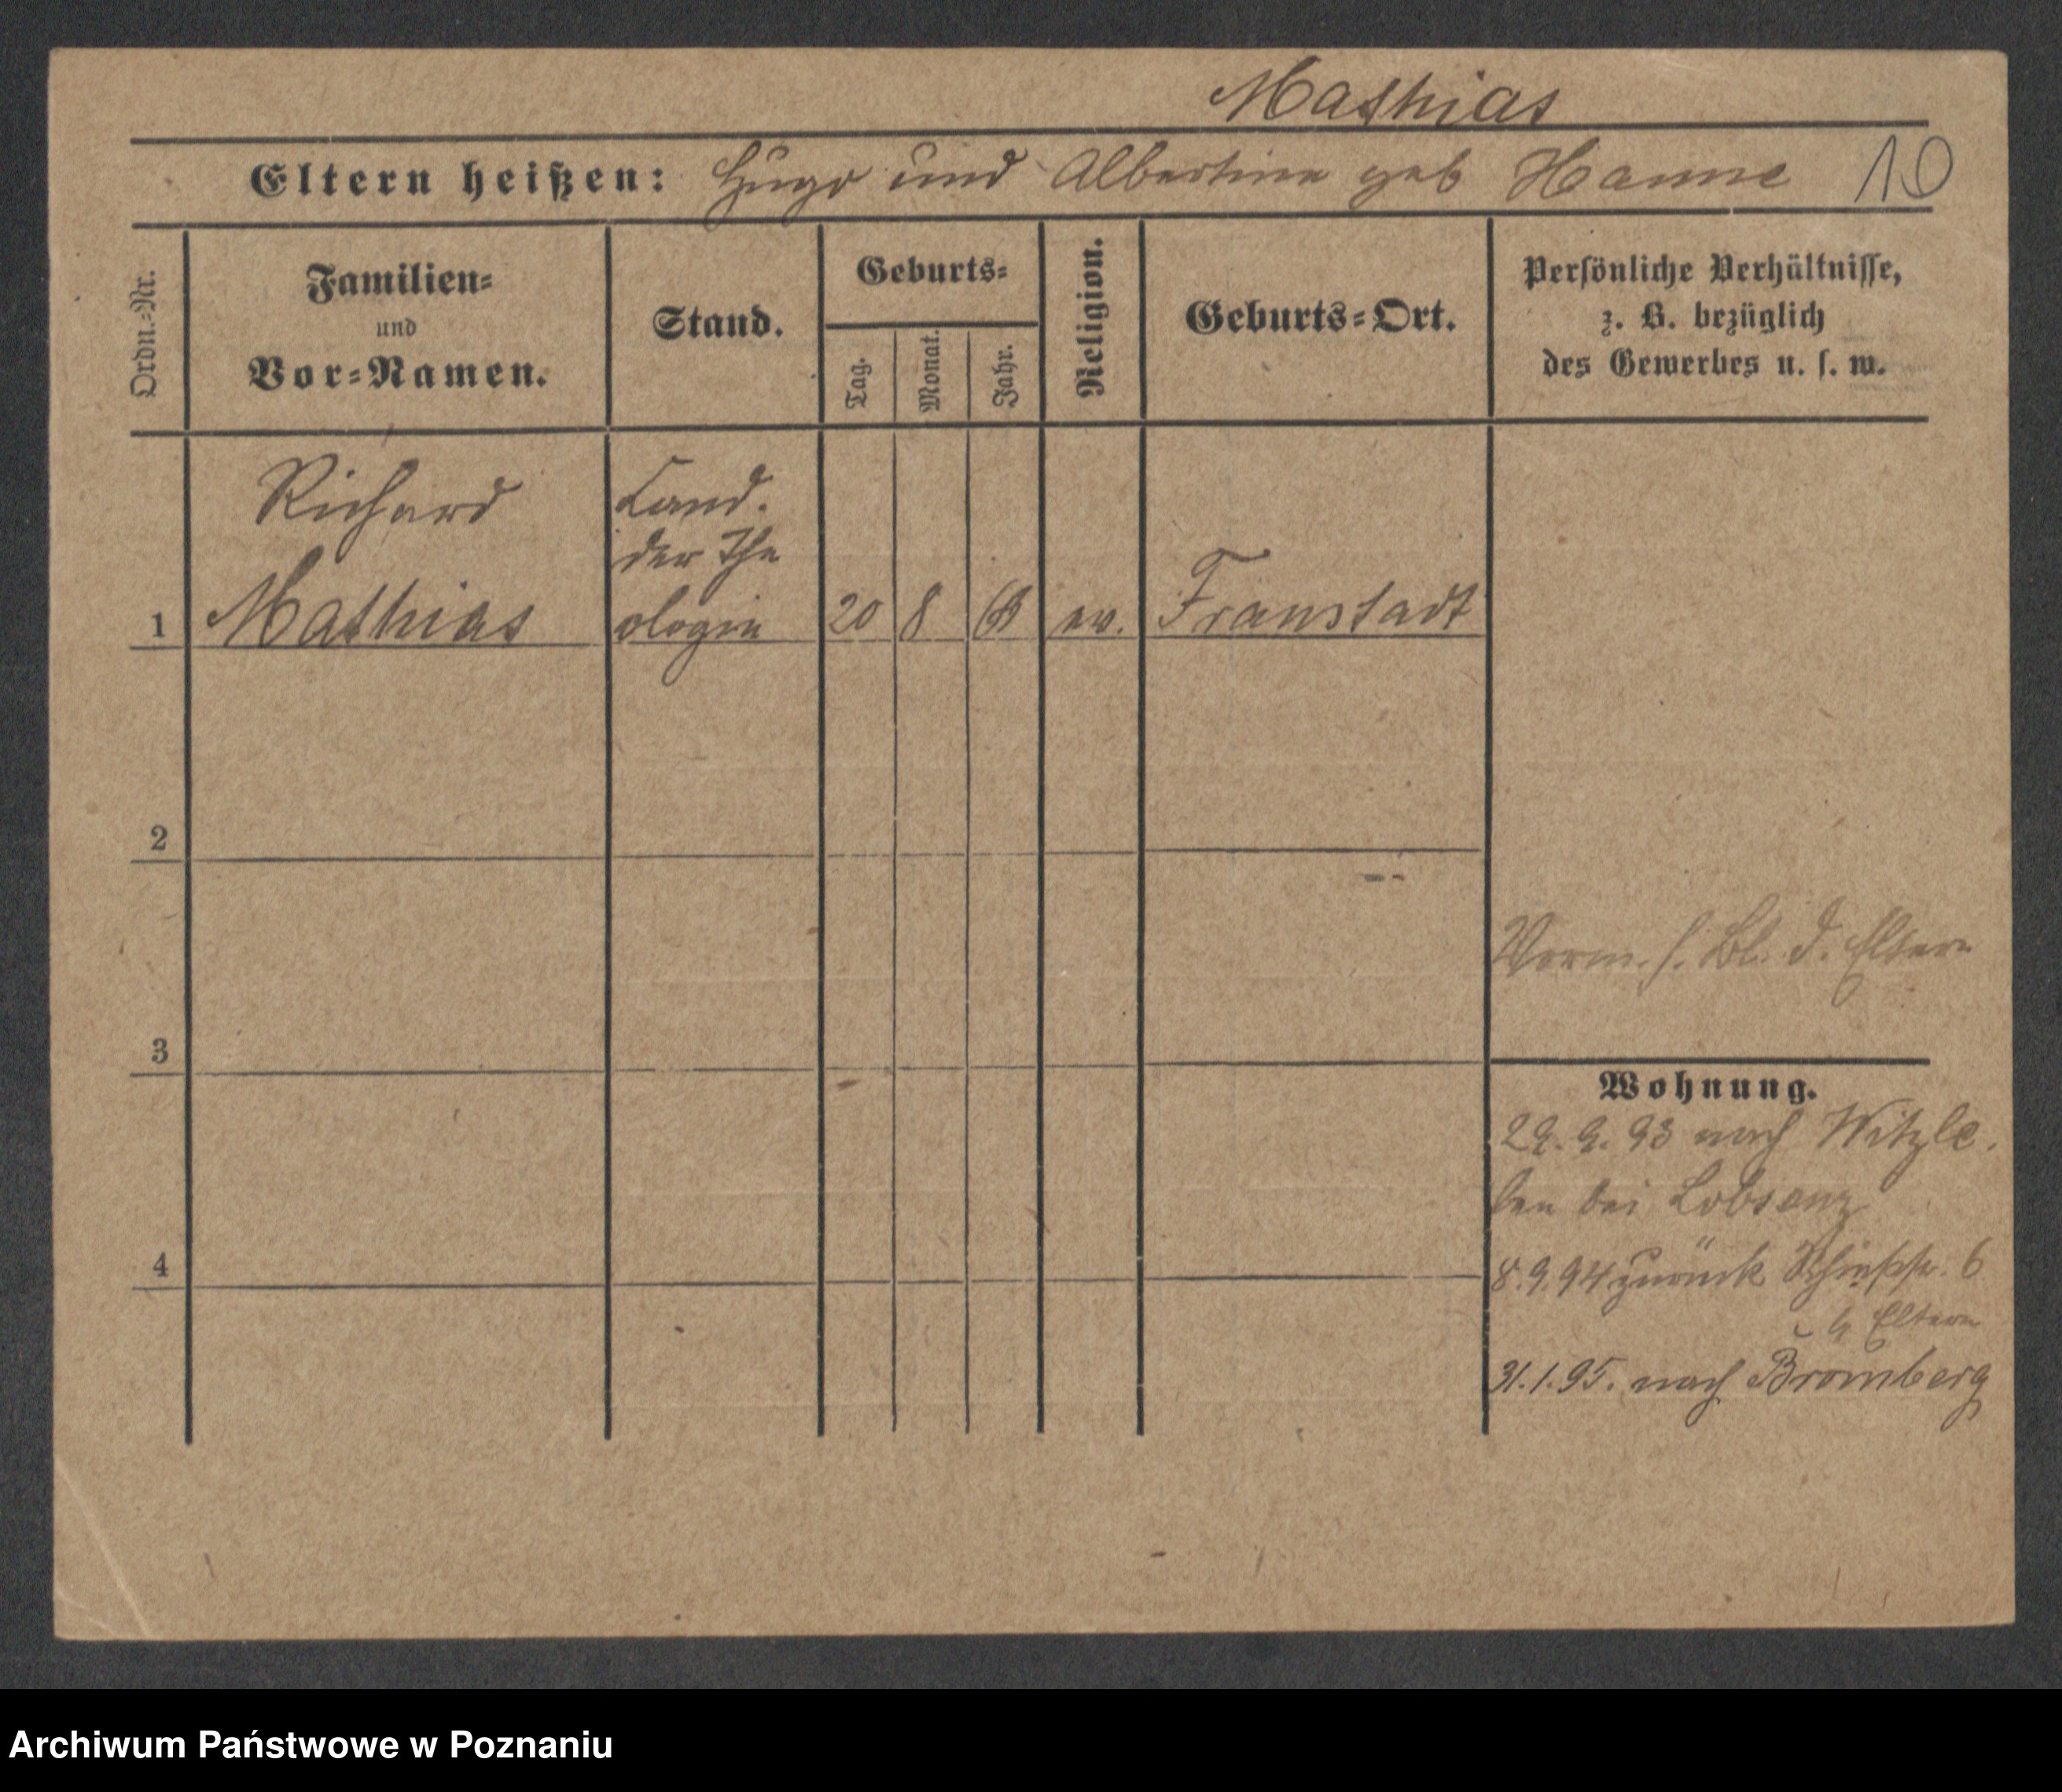 Mathias
Eltern heißen: Hugo und Albertine geb Hanne 10
Ordn.-Nr.
Familien-
und
Vor-Namen.
Stand.
Geburts-
Tag.
Monat.
Jahr.
Religion.
Geburts-Ort.
Persönliche Verhältnisse,
z. B. bezüglich
des Gewerbes u. s. w.
Richard
Cand.
der The
1 Mathias ologie 20 8 ev. Fraustadt
2
Verm. s. Bl. d. Eltern
3
Wohnung.
29. 9. 93 nach Witzle.
ben bei Lobsenz
4
8.9.94 zurück Schießstr. 6
b Eltern
31.1.95. nach Bromberg
Archiwum Państwowe w Poznaniu